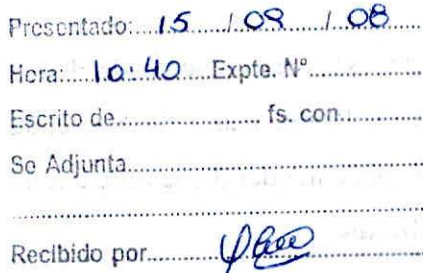 Presentado: 15 / 09 / 08
Hora: 10:40 Expte. Nº
Escrito de fs. con
Se Adjunta
Recibido por